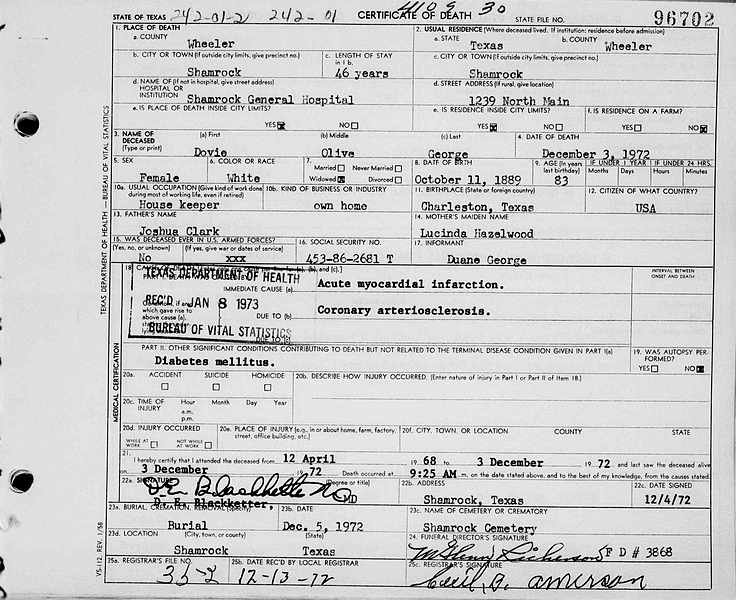 242-01-2 242-01 4109 30
STATE OF TEXAS CERTIFICATE OF DEATH STATE FILE NO. 96702
1. PLACE OF DEATH 2. USUAL RESIDENCE (Where deceased lived. If institution: residence before admission)
a. COUNTY a. STATE b. COUNTY
Wheeler Texas Wheeler
b. CITY OR TOWN (If outside city limits, give precinct no.) c. LENGTH OF STAY c. CITY OR TOWN (If outside city limits, give precinct no.)
in 1 b.
Shamrock 46 years Shamrock
d. NAME OF (If not in hospital, give street address) d. STREET ADDRESS (If rural, give location)
HOSPITAL OR
INSTITUTION Shamrock General Hospital 1239 North Main
e. IS PLACE OF DEATH INSIDE CITY LIMITS? e. IS RESIDENCE INSIDE CITY LIMITS? f. IS RESIDENCE ON A FARM?
YES NO YES NO YES NO
3. NAME OF (a) First (b) Middle (c) Last 4. DATE OF DEATH
DECEASED
(Type or print) Dovie Olive George December 3, 1972
5. SEX 6. COLOR OR RACE 7. 8. DATE OF BIRTH 9. AGE (In years IF UNDER 1 YEAR IF UNDER 24 HRS.
Married Never Married last birthday) Months Days Hours Minutes
Female White Widowed Divorced October 11, 1889 83
10a. USUAL OCCUPATION (Give kind of work done 10b. KIND OF BUSINESS OR INDUSTRY 11. BIRTHPLACE (State or foreign country) 12. CITIZEN OF WHAT COUNTRY?
during most of working life, even if retired)
House keeper own home Charleston, Texas USA
13. FATHER'S NAME 14. MOTHER'S MAIDEN NAME
Joshua Clark Lucinda Hazelwood
15. WAS DECEASED EVER IN U.S. ARMED FORCES? 16. SOCIAL SECURITY NO. 17. INFORMANT
(Yes, no, or unknown) (If yes, give war or dates of service)
No xxx 453-86-2681 T Duane George
18. (b), and (c).] INTERVAL BETWEEN
ONSET AND DEATH
TEXAS DEPARTMENT OF HEALTH
IMMEDIATE CAUSE (a) Acute myocardial infarction.
REC'D JAN 8 1973
which gave rise to
above cause (a), DUE TO (b) Coronary arteriosclerosis.
BUREAU OF VITAL STATISTICS
DUE TO (c)
PART II. OTHER SIGNIFICANT CONDITIONS CONTRIBUTING TO DEATH BUT NOT RELATED TO THE TERMINAL DISEASE CONDITION GIVEN IN PART I(a) 19. WAS AUTOPSY PER-
FORMED?
Diabetes mellitus. YES NO
20a. ACCIDENT SUICIDE HOMICIDE 20b. DESCRIBE HOW INJURY OCCURRED. (Enter nature of injury in Part I or Part II of item 18.)
20c. TIME OF Hour Month Day Year
INJURY a.m.
p.m.
20d. INJURY OCCURRED 20e. PLACE OF INJURY (e.g., in or about home, farm, factory, 20f. CITY, TOWN, OR LOCATION COUNTY STATE
street, office building, etc.)
WHILE AT WORK NOT WHILE AT WORK
21. I hereby certify that I attended the deceased from 12 April 19 68 to 3 December 19 72 and last saw the deceased alive
on 3 December 19 72 Death occurred at 9:25 AM m. on the date stated above, and to the best of my knowledge, from the causes stated.
22a. SIGNATURE (Degree or title) 22b. ADDRESS 22c. DATE SIGNED
D. E. Blackketter MD
D. E. Blackketter, MD Shamrock, Texas 12/4/72
23a. BURIAL, CREMATION, REMOVAL (Specify) 23b. DATE 23c. NAME OF CEMETERY OR CREMATORY
Burial Dec. 5, 1972 Shamrock Cemetery
23d. LOCATION (State) 24. FUNERAL DIRECTOR'S SIGNATURE
Shamrock Texas F D # 3868
25a. REGISTRAR'S FILE NO. 25b. DATE REC'D BY LOCAL REGISTRAR 25c. REGISTRAR'S SIGNATURE
35-2 12-13-72 Cecil A. Amerson
TEXAS DEPARTMENT OF HEALTH — BUREAU OF VITAL STATISTICS
MEDICAL CERTIFICATION
VS-112 REV. 1/58